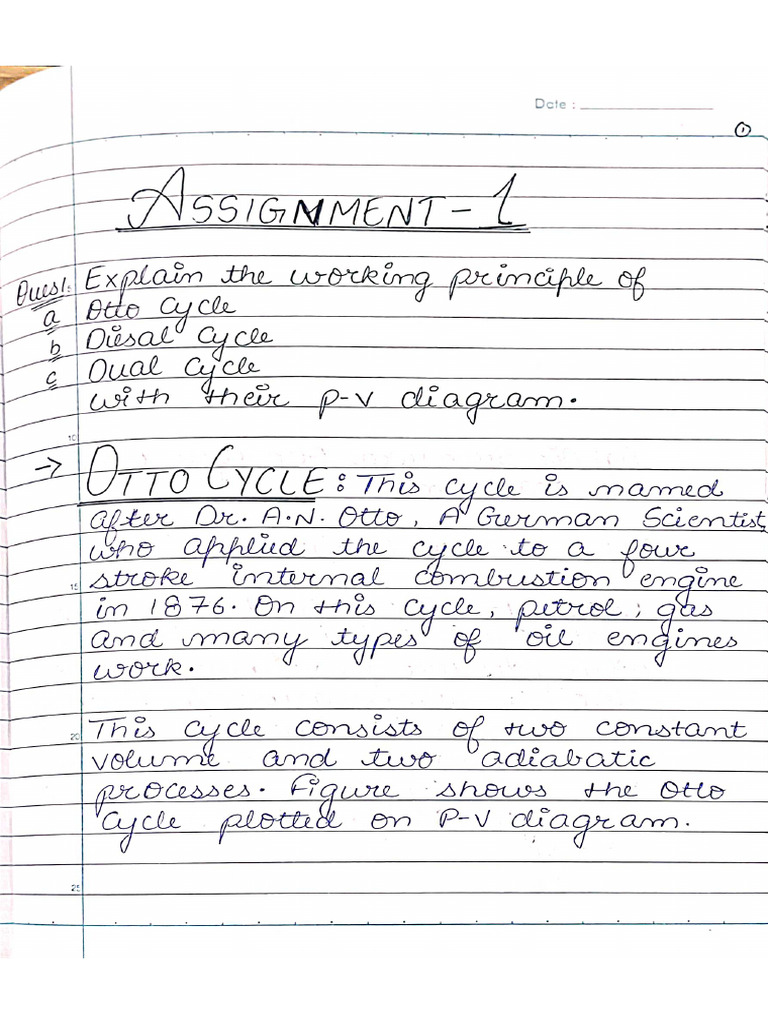 Date :
1
ASSIGNMENT-1
Ques1. Explain the working principle of
a Otto Cycle
b Diesal Cycle
c Dual Cycle
with their p-v diagram.
10
→ OTTO CYCLE : This cycle is named
after Dr. A.N. Otto, A German Scientist,
who applied the cycle to a four
15 stroke internal combustion engine
in 1876. On this cycle, petrol, gas
and many types of oil engines
work.
20 This cycle consists of two constant
volume and two adiabatic
processes. Figure shows the Otto
Cycle plotted on P-V diagram.
25